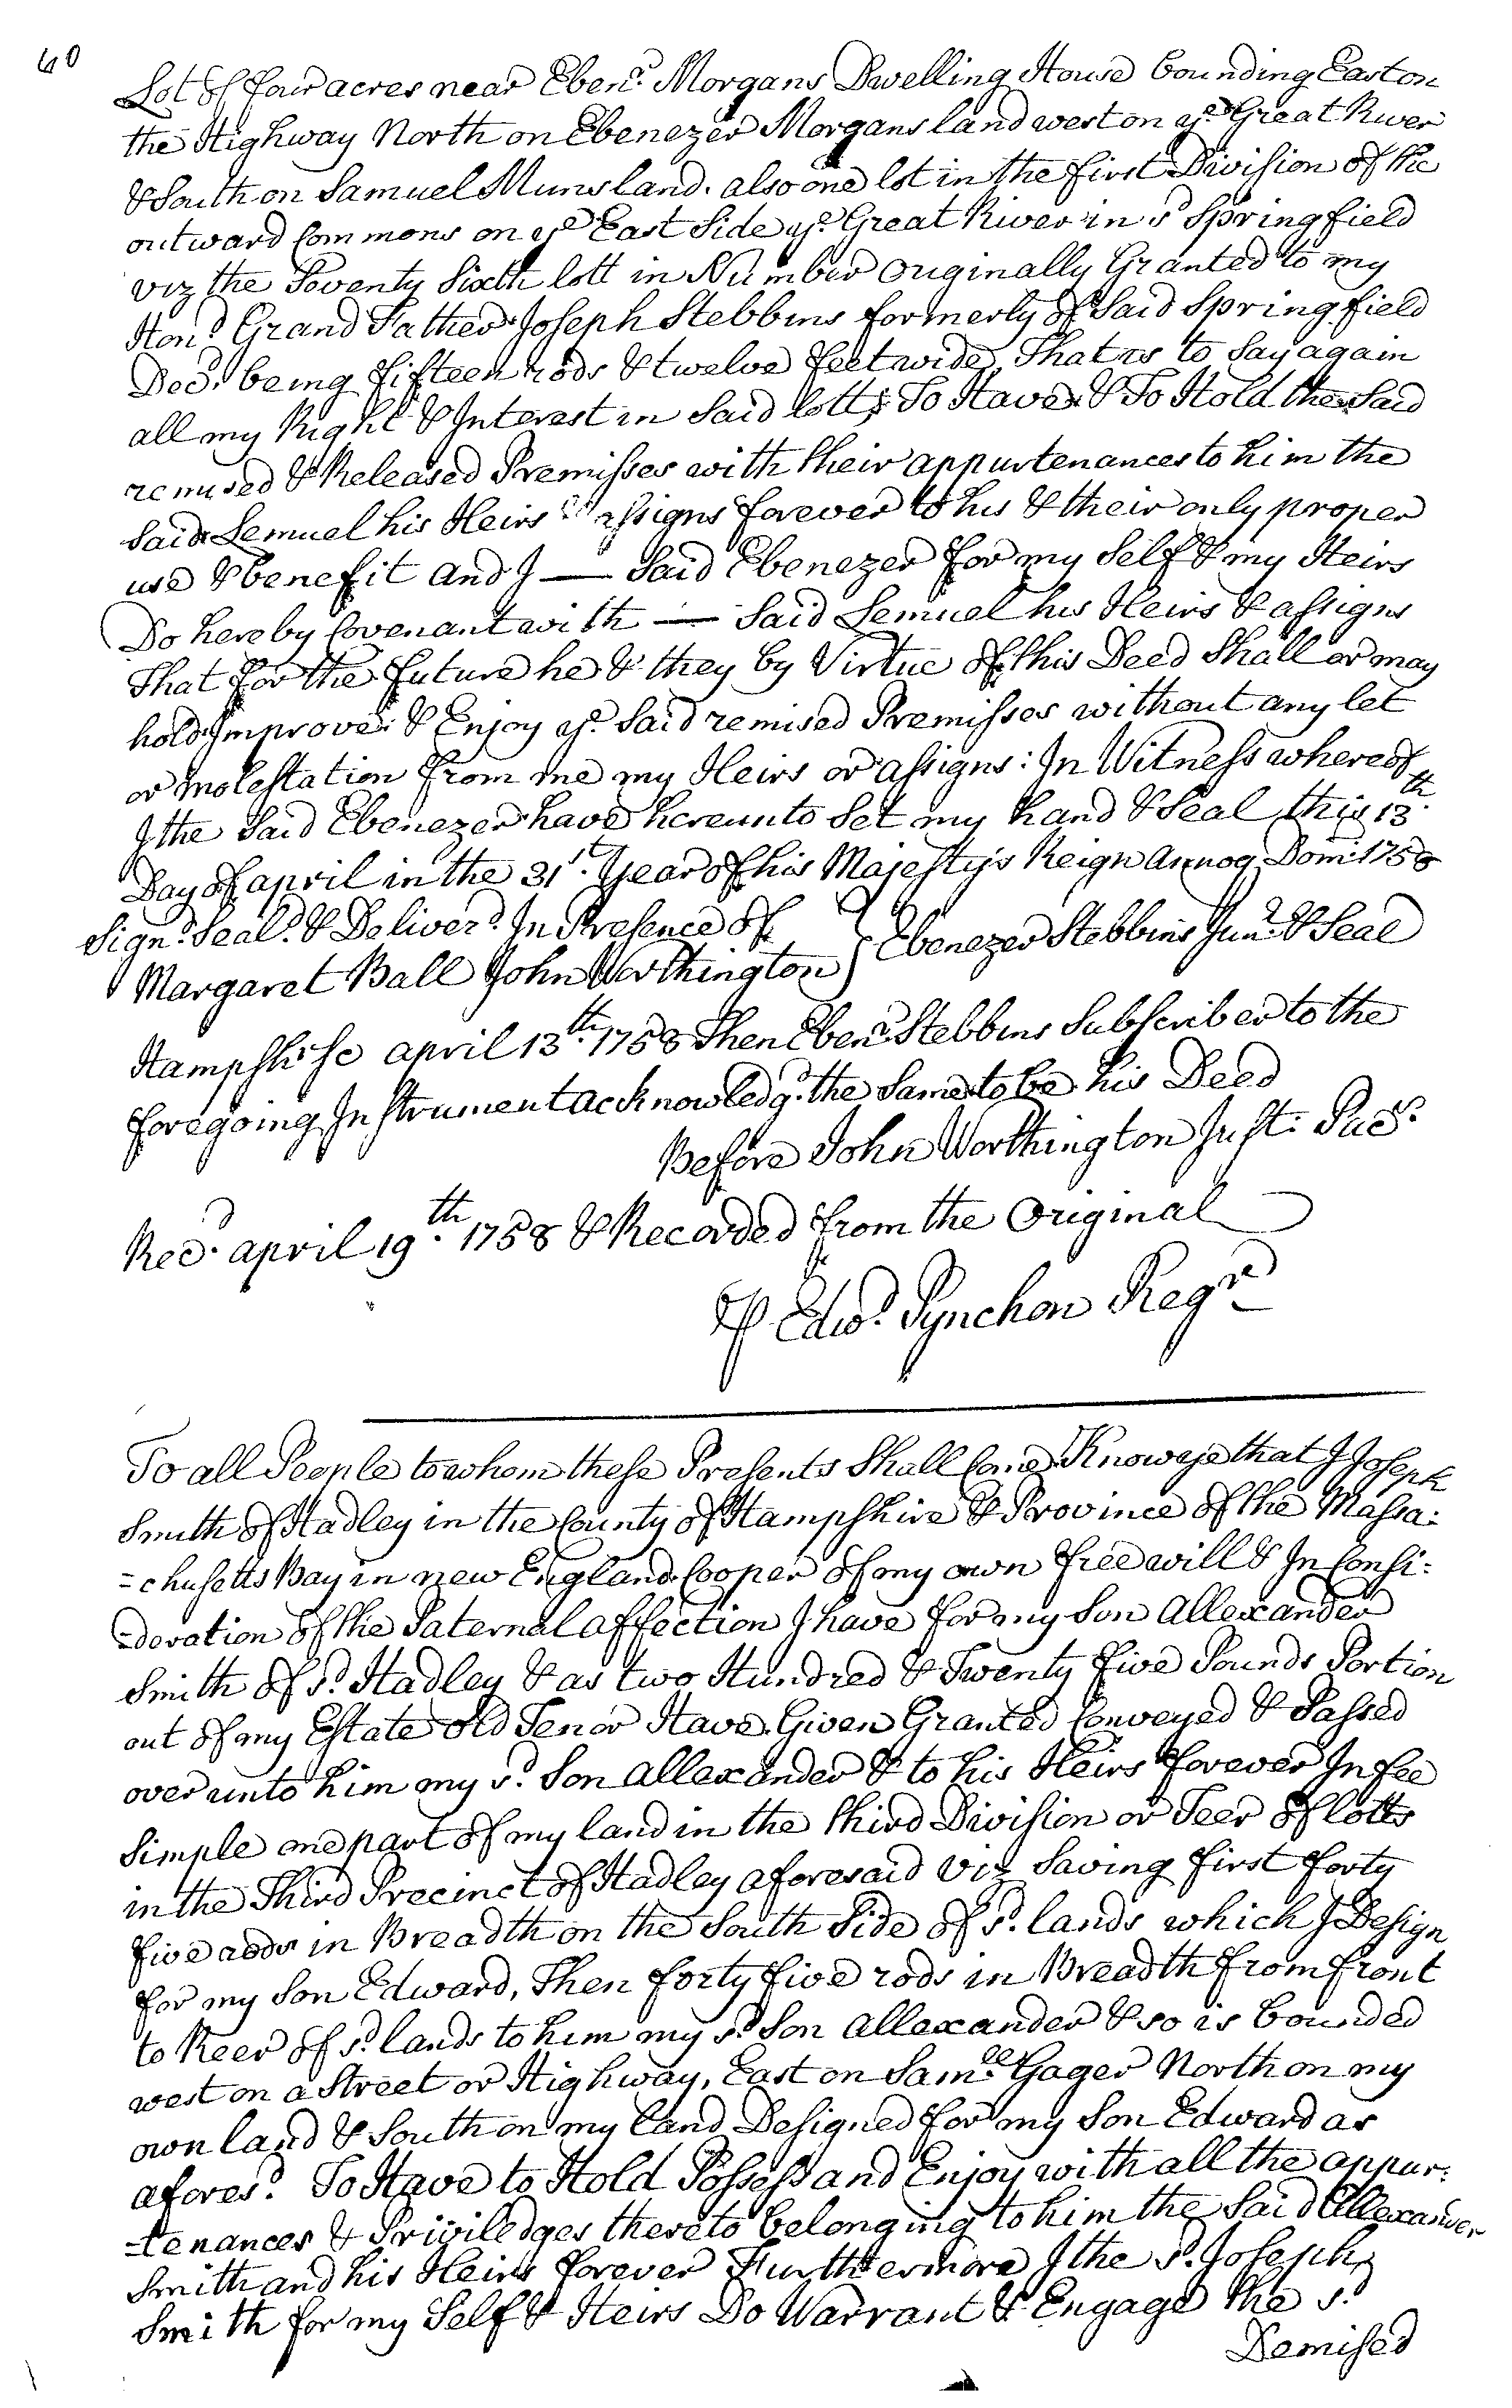 60
Lot of four acres near Ebenr. Morgans Dwelling House bounding East on
the Highway North on Ebenezer Morgans land west on ye. Great River
& South on Samuel Muns land. also one lot in the first Division of the
outward Commons on ye East Side ye. Great River in sd Springfield
viz the Seventy Sixth lott in Number Originally Granted to my
Hond. Grand Father Joseph Stebbins formerly of Said Springfield
Decd. being fifteen rods & twelve feet wide, That is to Say again
all my Right & Interest in Said lotts To Have & To Hold the Said
remised & Released Premisses with their appurtenances to him the
Said Lemuel his Heirs & assigns forever to his & their only proper
use & benefit And I — Said Ebenezer for my Self & my Heirs
Do hereby Covenant with — Said Lemuel his Heirs & assigns
That for the future he & they by Virtue of this Deed Shall or may
hold Improve & Enjoy ye. Said remised Premisses without any let
or molestation from me my Heirs or assigns: In Witness whereof
I the Said Ebenezer have hereunto Set my hand & Seal this 13th.
Day of april in the 31st. Year of his Majestys Reign Annoq Domi 1758
Signd. Seald. & Deliverd. In Presence of
Margaret Ball John Worthington } Ebenezer Stebbins Junr. & Seal
Hampshire april 13th. 1758 Then Ebenr. Stebbins Subscriber to the
foregoing Instrument acknowledgd. the Same to be his Deed
Before John Worthington Just: Pacs.
Recd. april 19th. 1758 & Recorded from the Original
⅌ Edwd. Pynchon Regr
To all People to whom these Presents Shall Come Know ye that I Joseph
Smith of Hadley in the County of Hampshire & Province of the Massa:
=chusetts Bay in new England Cooper of my own free will & In Consi:
=deration of the Paternal affection I have for my Son Allexander
Smith of sd. Hadley & as two Hundred & Twenty five Pounds Portion
out of my Estate old Tenor Have Given Granted Conveyed & Passed
over unto him my sd. Son Allexander & to his Heirs forever In fee
Simple one part of my land in the third Division or Teer of lotts
in the Third Precinct of Hadley aforesaid viz Saving first forty
five rods in Breadth on the South Side of sd. lands which I Design
for my Son Edward, Then forty five rods in Breadth from front
to Reer of sd. lands to him my sd. Son Allexander & so is bounded
west on a Street or Highway, East on Samll. Gager North on my
own land & South on my land Designed for my Son Edward as
aforesd. To Have to Hold Possess and Enjoy with all the appur:
=tenances & Priviledges thereto belonging to him the Said Allexander
Smith and his Heirs forever Furthermore I the sd. Joseph
Smith for my Self & Heirs Do Warrant & Engage the sd.
Demised